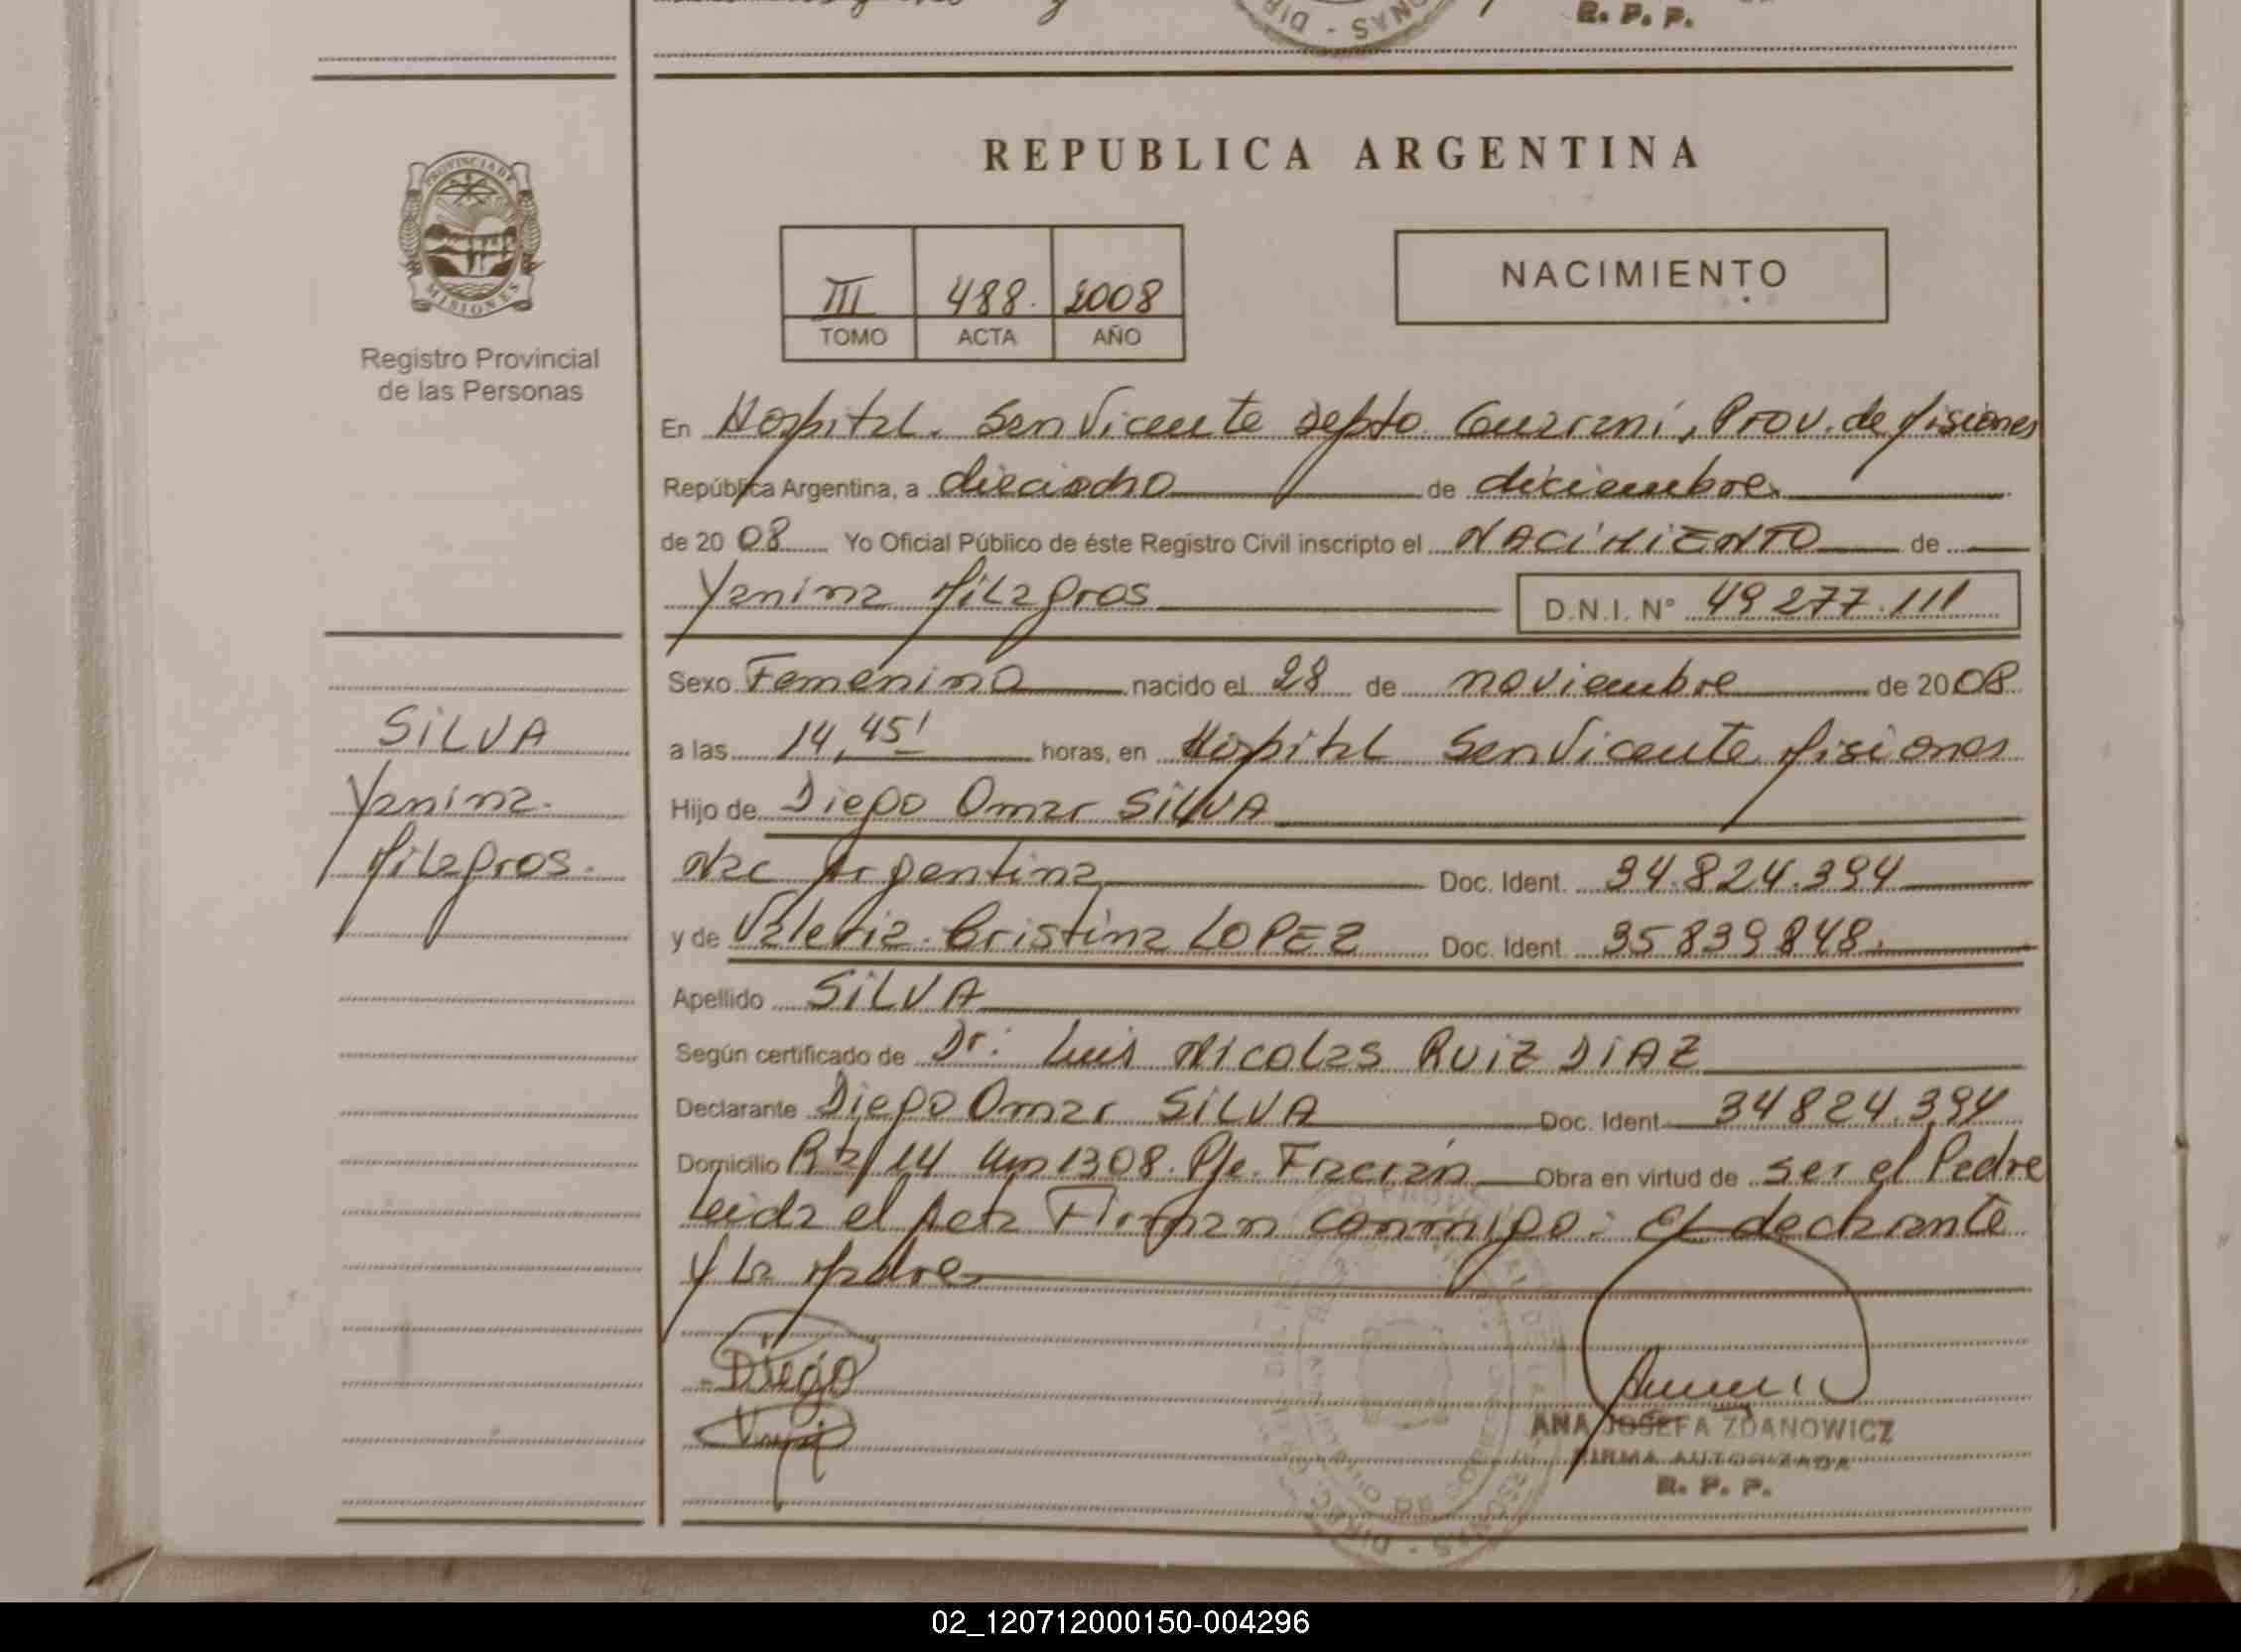 R. P. P.
PROVINCIA DE
MISIONES
Registro Provincial
de las Personas
REPUBLICA ARGENTINA
III 488. 2008
TOMO ACTA AÑO
NACIMIENTO
En Hospital. San Vicente Depto Guarani, Prov. de Misiones
República Argentina, a dieciocho de diciembre
de 2008 Yo Oficial Público de éste Registro Civil inscripto el NACIMIENTO de
Yanina Milagros D.N.I. N° 49 277.111
Sexo Femenino nacido el 28 de noviembre de 2008
a las 14,45' horas, en Hospital San Vicente Misiones
Hijo de Diego Omar SILVA
Nac Argentina Doc. Ident. 34.824.394
y de Valeria Cristina LOPEZ Doc. Ident. 35839848.
Apellido SILVA
Según certificado de Dr. Luis Nicolas RUIZ DIAZ
Declarante Diego Omar SILVA Doc. Ident 34824.394
Domicilio Rta 14 Km 1308. Pje. Fracran Obra en virtud de ser el Padre
Leida el Acta Firman conmigo: El declarante
y La Madre
SILVA
Yanina
Milagros.
Diego
ANA JOSEFA ZDANOWICZ
FIRMA AUTORIZADA
R. P. P.
02_120712000150-004296